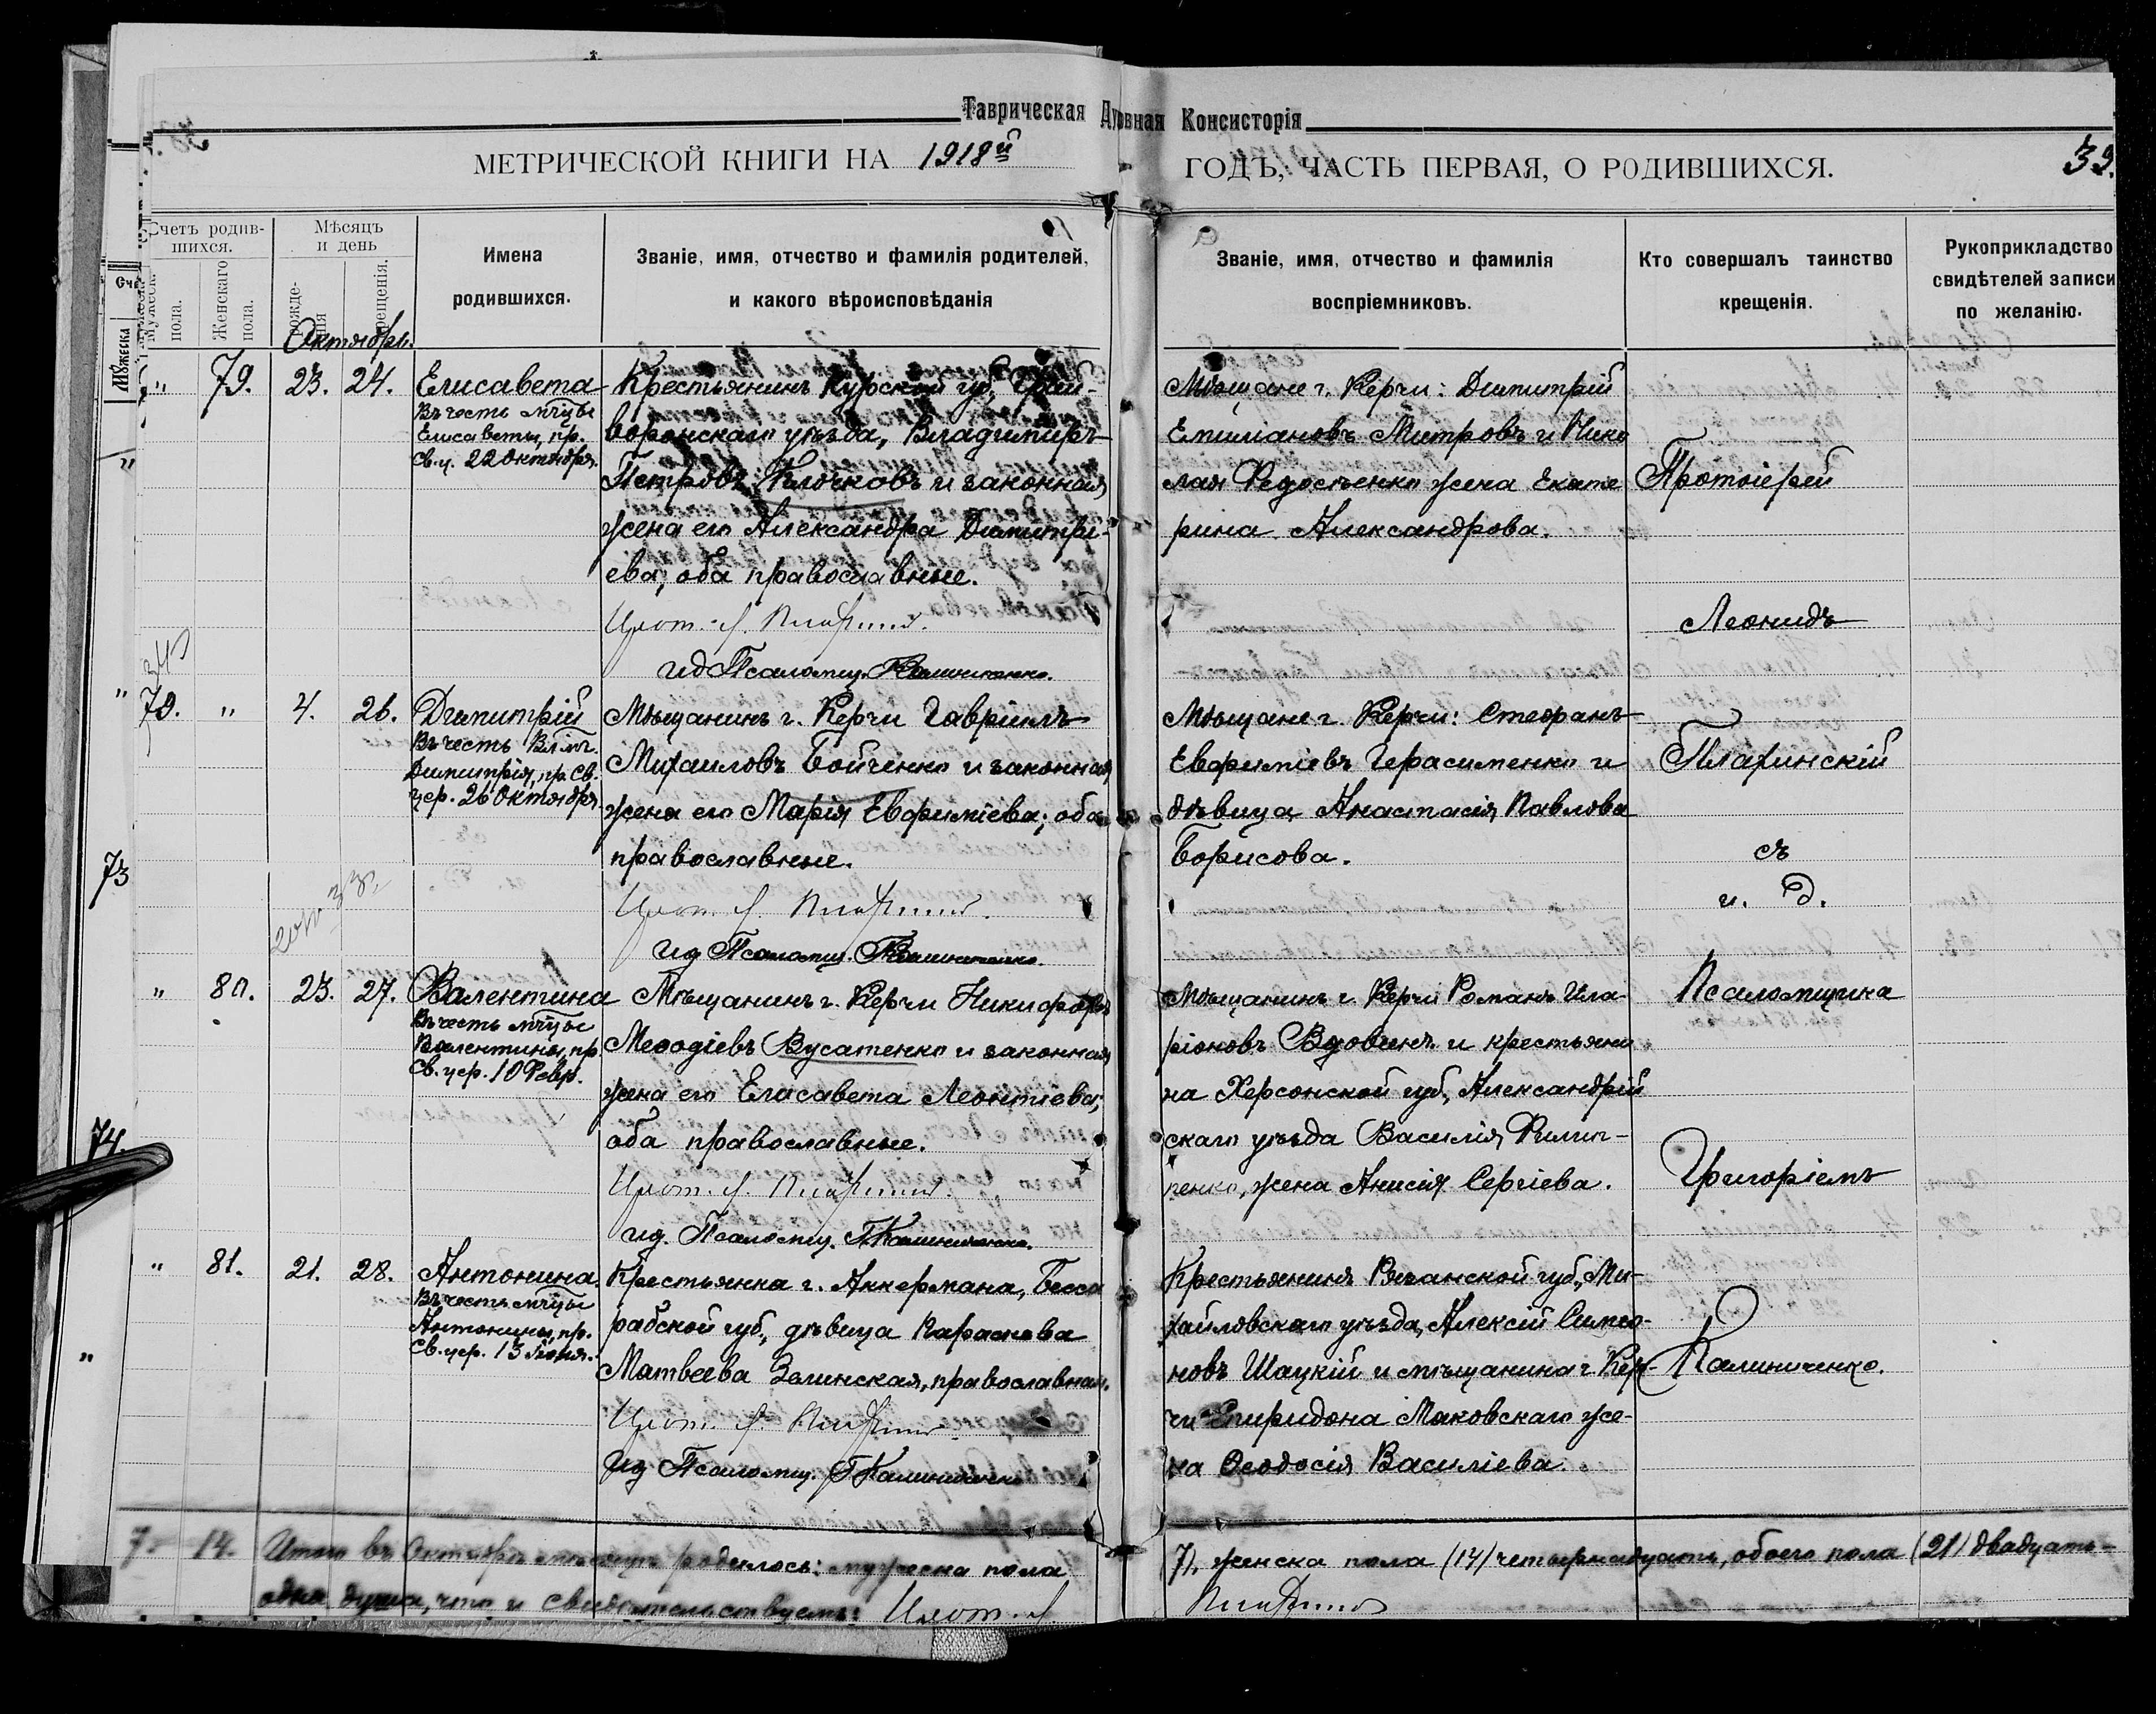 Таврическая Духовная Консисторія
МЕТРИЧЕСКОЙ КНИГИ НА 1918й ГОДЪ, ЧАСТЬ ПЕРВАЯ, О РОДИВШИХСЯ. 39.
Счетъ родив-
шихся.
Мужеска
пола.
Женскаго
пола.
Мѣсяцъ
и день
рожде-
нія
крещенія.
Имена
родившихся.
Званіе, имя, отчество и фамилія родителей,
и какого вѣроисповѣданія
Званіе, имя, отчество и фамилія
воспріемниковъ.
Кто совершалъ таинство
крещенія.
Рукоприкладство
свидѣтелей записи
по желанію.
Октябрь.
" 79. 23. 24.
Елисавета
Въ честь мчцы
Елисаветы, пр.
Св. ц. 22 Октября.
Крестьянинъ Курской губ., Грай-
воронскаго уѣзда, Владимиръ
Петровъ Клочковъ и законная
жена его Александра Димитрі-
ева, оба православные.
Прот. Л.
ид Псаломщ. Калиниченко.
Мѣщане г. Керчи: Димитрій
Епимановъ Митровъ и Нико
лая Федосѣенко жена Екате
рина Александрова.
70. " 4. 26.
Димитрій
Въ честь Влмч.
Димитрія, пр. Св.
цер. 26 Октября.
Мѣщанинъ г. Керчи Гавріилъ
Михаиловъ Бойченко и законная
жена его Марія Евфиміева; оба
православные.
Прот. Л.
ид Псаломщ. Калиниченко.
Мѣщане г. Керчи: Стефанъ
Евфиміевъ Герасименко и
дѣвица Анастасія Павлова
Борисова.
" 80. 23. 27.
Валентина
Въ честь мчцы
Валентины, пр.
Св. цер. 10 Февр.
Мѣщанинъ г. Керчи Никифоръ
Меѳодіевъ Вусатенко и законная
жена его Елисавета Леонтіева;
оба православные.
Прот. Л.
ид. Псаломщ. Г Калиниченко.
Мѣщанинъ г. Керчи Романъ Ила-
ріоновъ Вдовинъ и крестьяни
на Херсонской губ., Александрій
скаго уѣзда Василія Филип-
пенко, жена Анисія Сергіева.
" 81. 21. 28.
Антонина.
Въ честь мчцы
Антонины, пр.
Св. цер. 13 Іюня.
Крестьянка г. Аккермана, Бесса
рабской губ., дѣвица Параскева
Матвеева Зелинская, православная.
Прот. Л.
ид Псаломщ. Г Калиниченко
Крестьянинъ Рязанской губ., Ми-
хайловскаго уѣзда, Алексій Симео-
новъ Шацкій и мѣщанина г. Кер-
чи Спиридона Маковскаго же-
на Ѳеодосія Василіева.
Протоіерей
Леонидъ
Плафинскій
съ
и. д.
Псаломщика
Григоріемъ
Калиниченко.
73
74.
7. 14. Итого въ Октябрѣ мѣсяцѣ родилось: мужеска пола (7), женска пола (14) четырнадцать, обоего пола (21) двадцать-
одна душа, что и свидѣтельствуемъ: Прот. Л.